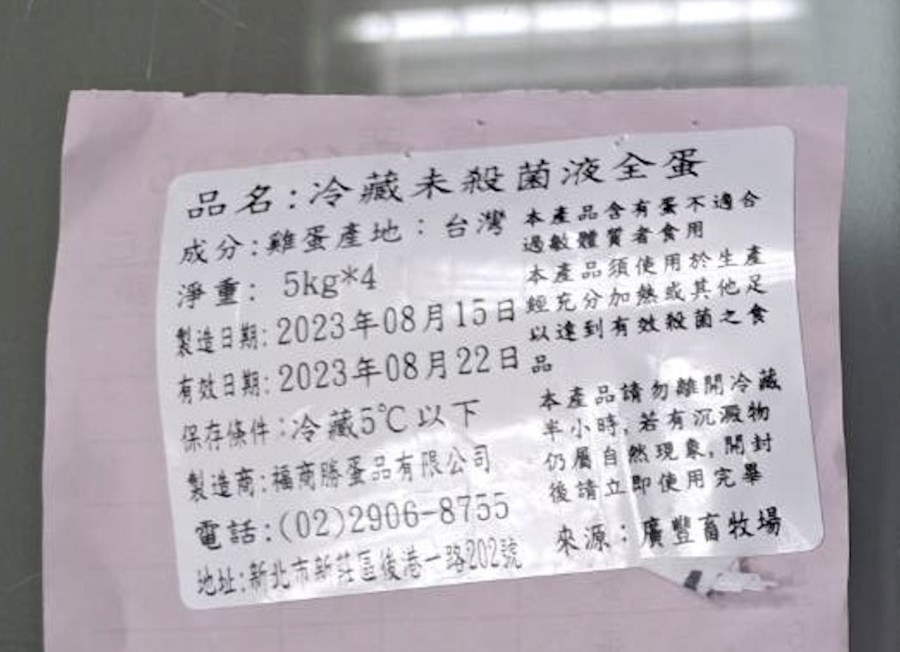 品名:冷藏未殺菌液全蛋
成分:雞蛋產地:台灣
淨重: 5kg*4
製造日期:2023年08月15日
有效日期:2023年08月22日
保存條件:冷藏5℃以下
製造商:福商勝蛋品有限公司
電話:(02)2906-8755
地址:新北市新莊區後港一路202號
本產品含有蛋不適合
過敏體質者食用
本產品須使用於生產
經充分加熱或其他足
以達到有效殺菌之食
品
本產品請勿離開冷藏
半小時,若有沉澱物
仍屬自然現象,開封
後請立即使用完畢
來源:廣豐畜牧場